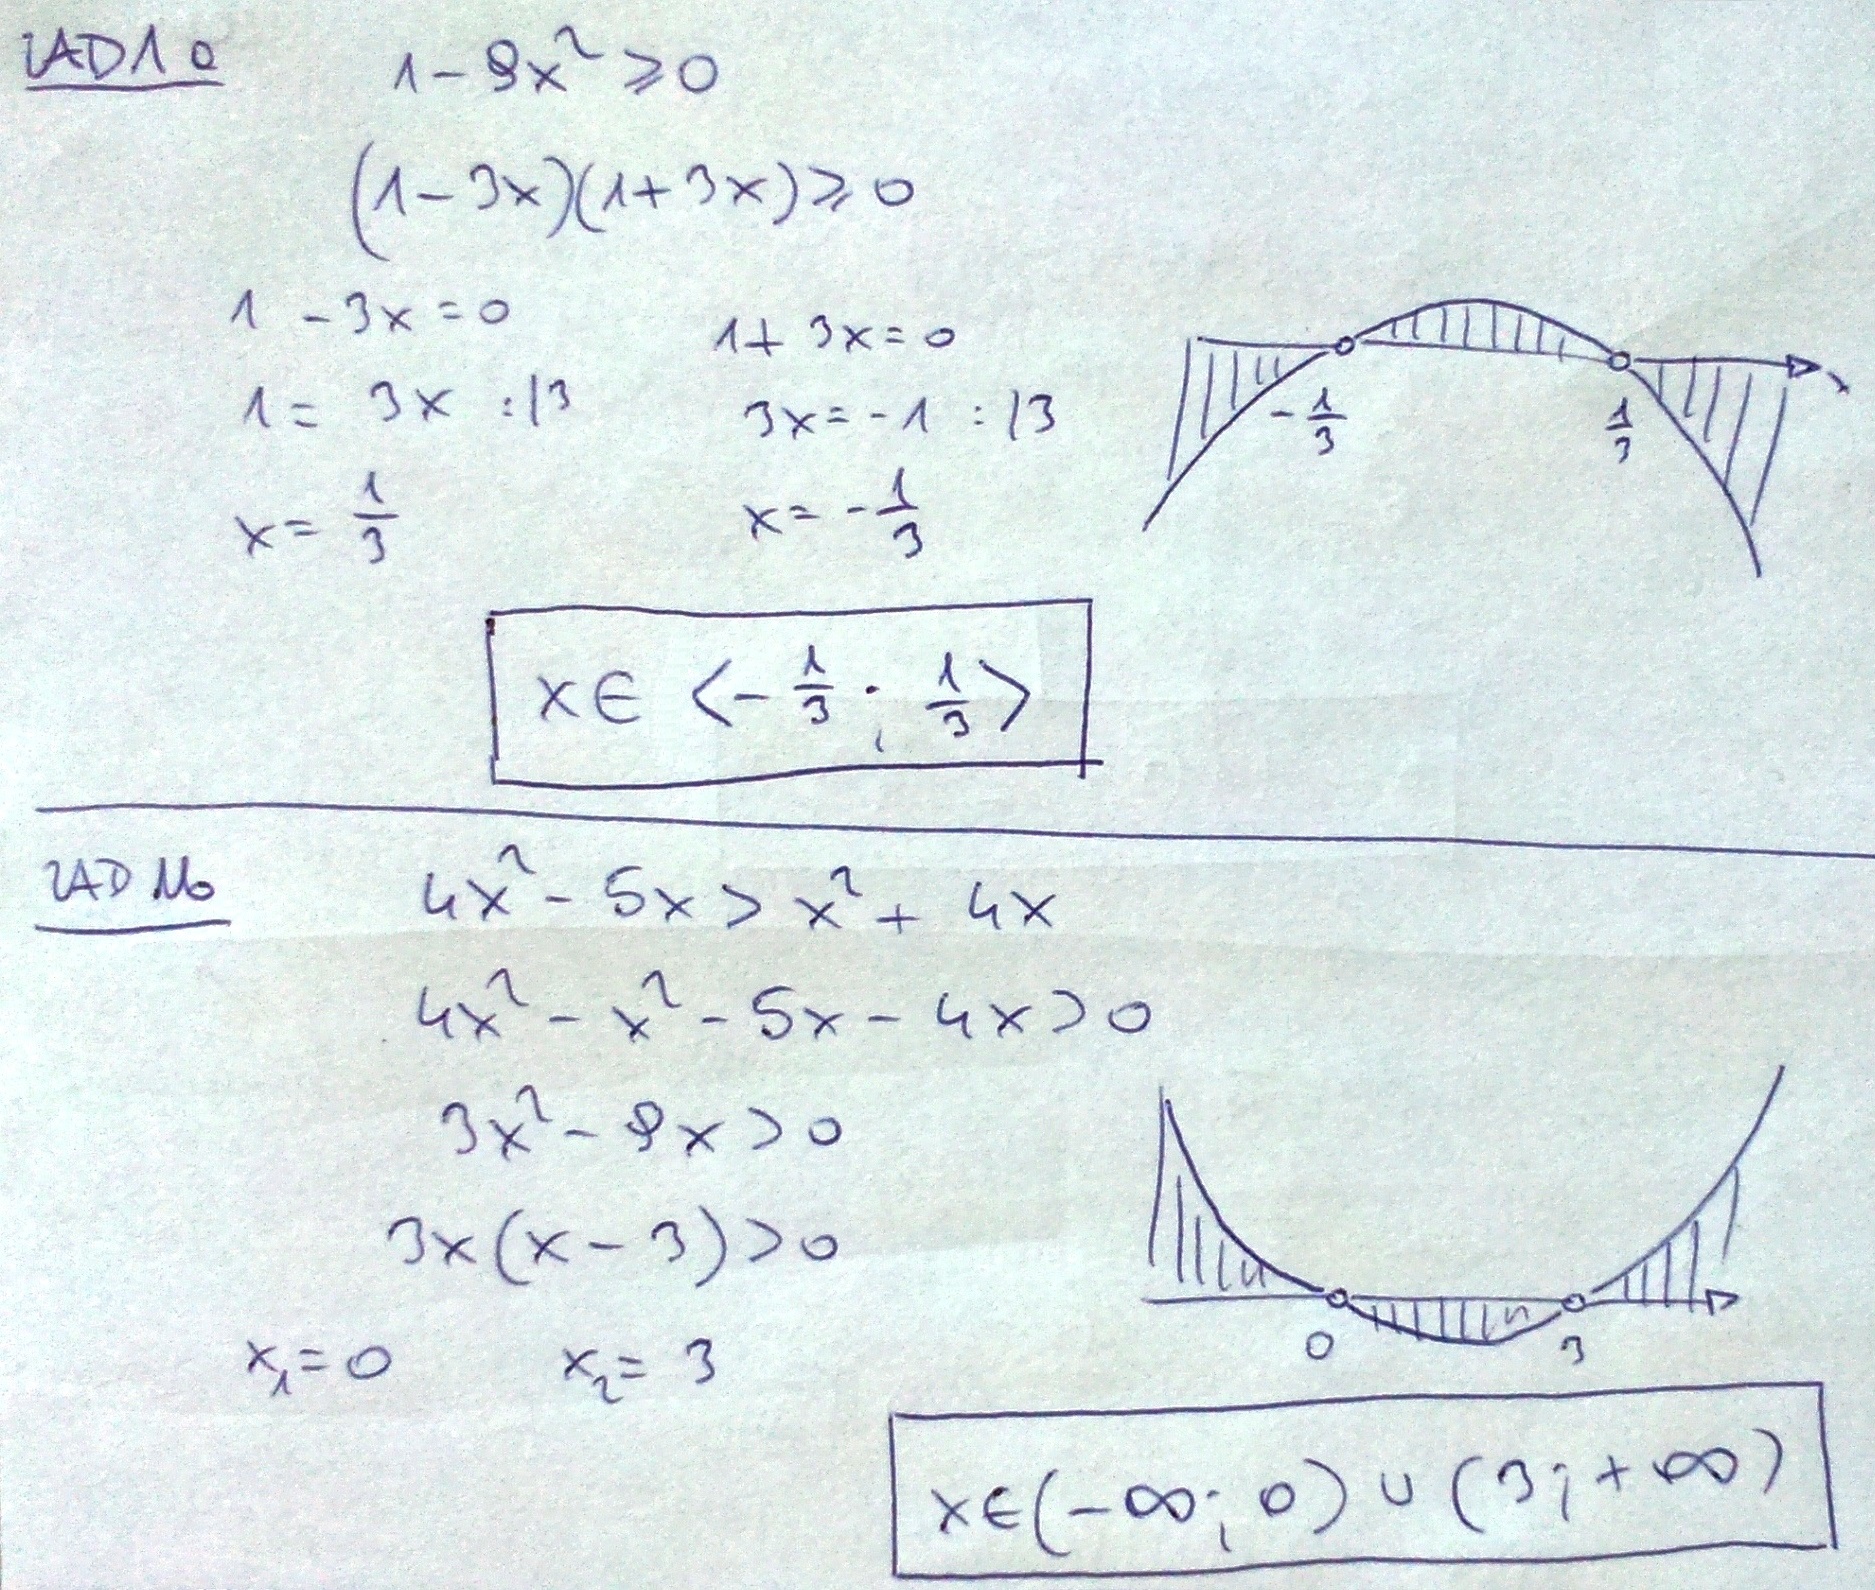 ZAD 10
1 - 9x² ⩾ 0
(1 - 3x)(1 + 3x) ⩾ 0
1 - 3x = 0
1 = 3x :|3
x = 1/3
1 + 3x = 0
3x = -1 :|3
x = -1/3
-1/3 1/3 x
x ∈ <-1/3 ; 1/3>
ZAD 16
4x² - 5x > x² + 4x
4x² - x² - 5x - 4x > 0
3x² - 9x > 0
3x(x - 3) > 0
x₁ = 0 x₂ = 3
0 3
x ∈ (-∞; 0) ∪ (3; +∞)